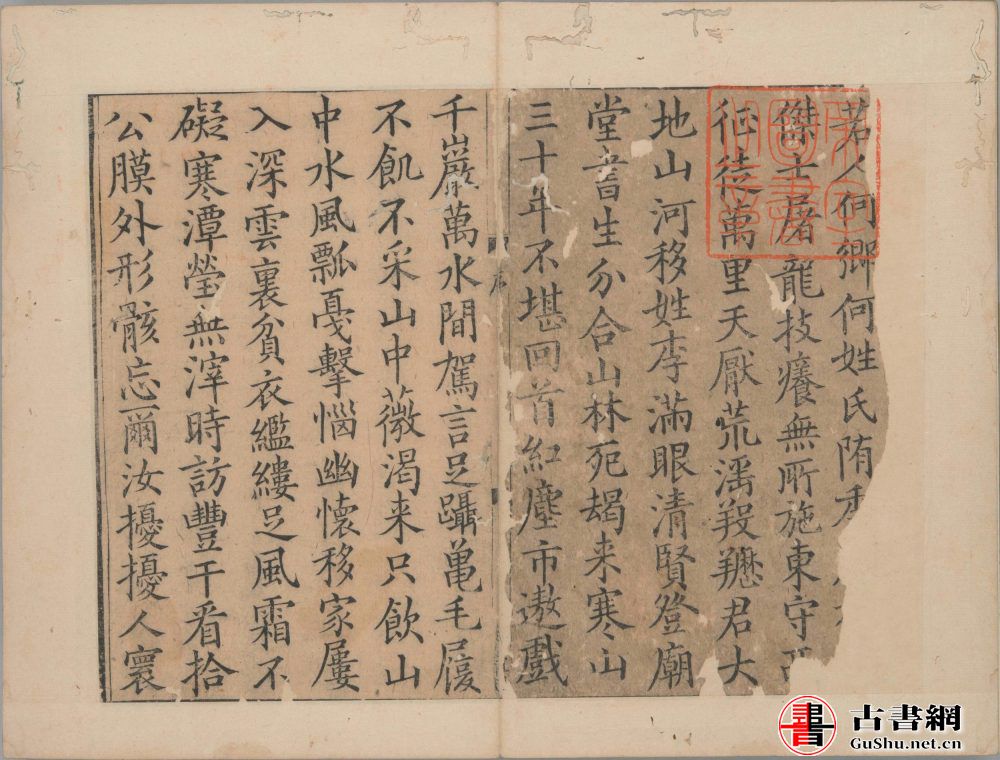 若人何鄉何姓氏隋
儁士屠龍技癢無所施東守
征徒萬里天厭荒滛羖䍽君大
地山河移姓李滿眼清賢登廟
堂書生分合山林死朅来寒山
三十年不堪回首紅塵市遨戲
序
千巖萬水間駕言足躡龜毛屨
不飢不采山中薇渴来只飲山
中水風瓢戞擊惱幽懷移家屢
入深雲裏貧衣繿縷足風霜不
礙寒潭瑩無滓時訪豐干看拾
公膜外形骸忘爾汝擾擾人寰
書 古書網
GuShu.net.cn